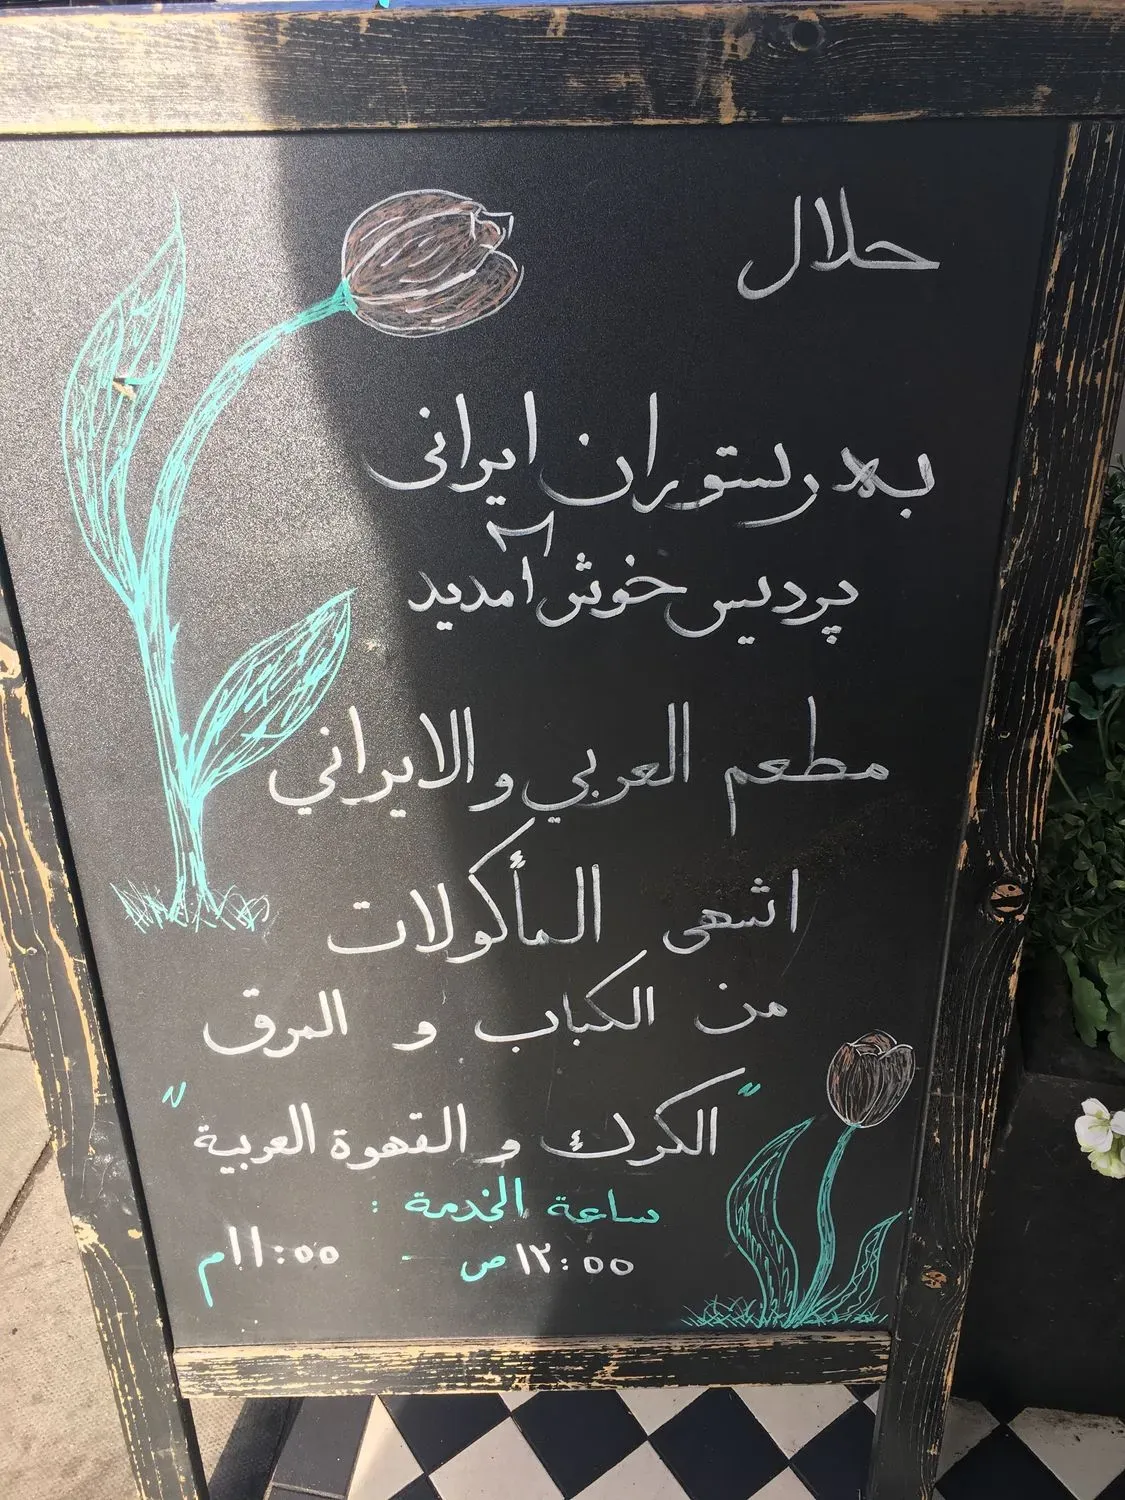 حلال
به رستوران ایرانی
پردیس خوش آمدید
مطعم العربي والايراني
اشهى المأكولات
من الكباب و المرق
"الكرك و القهوة العربية"
ساعة الخدمة :
١٢:٥٥ ص - ١١:٥٥ م